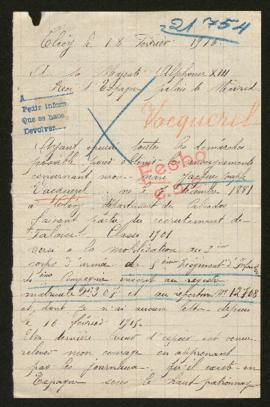 21754
le 18 Février 1916
A Sa Majesté Alphonse XIII
Roi d'Espagne palais de Madrid
A
Pedir inform
Que se hace
Devolver
Vacquerel
Ayant épuisé toutes les démarches
possible pour obtenir renseignements
concernant mon
Fecha
Vacquerel né 1881
à département du Calvados
faisant partie du recrutement de
Falaise Classe 1901
à la mobilisation au 3ème
corps d'armée 5ème Régiment d'Infanterie
Compagnie inscrit au registre
matricule et au répertoire Nº 12708
et dont je n'ai aucun depuis
le 10 février 1915.
Une dernière d'espoir est venue
relever mon courage en apprenant
par les journaux qu'il existe en
Espagne sous le haut patronage